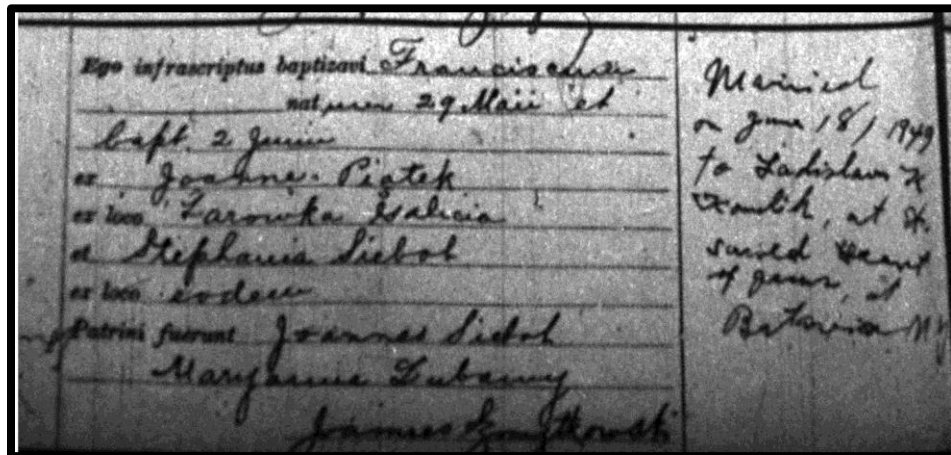 Ego infrascriptus baptizavi Franciscum
natum 29 Maii et
bapt. 2 Junii
ex Joanne Piątek
ex loco Zarowka Galicia
et Stephania Siebot
ex loco eodem
Patrini fuerunt Joannes Siebot
Maryanna
Joannes
Married
on June 18, 1949
to Ladislaus
at
Sacred Heart
of Jesus, at
Batavia N